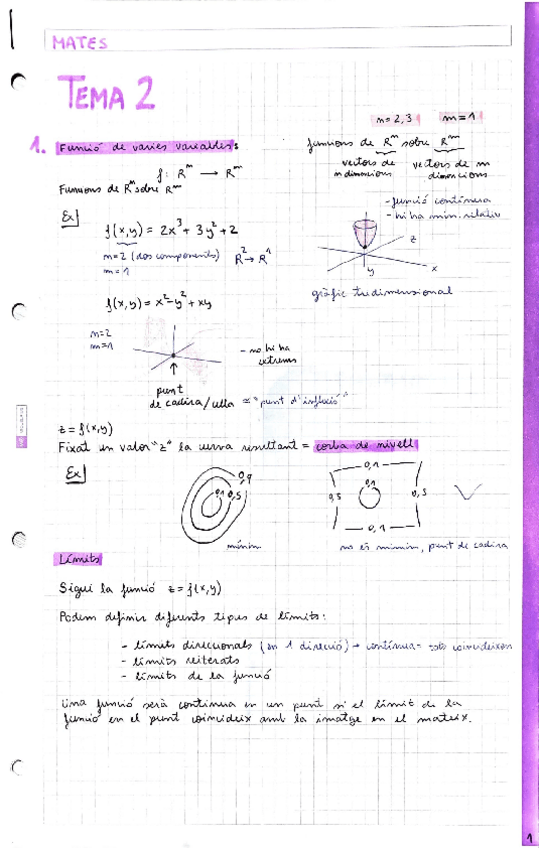 MATES
TEMA 2
n=2,3 m=1
1. Funció de varies variables
funcions de Rⁿ sobre Rᵐ
vectors de n dimensions
vectors de m dimensions
f: Rⁿ → Rᵐ
Funcions de Rⁿ sobre Rᵐ
- funció contínua
- hi ha min. relatiu
Ex
f(x,y) = 2x³ + 3y² + 2
n=2 (dos components) R² → R¹
m=1
z
x
y
gràfic tridimensional
f(x,y) = x² - y² + xy
n=2
m=1
- no hi ha
extrems
punt
de cadira/sella ≈ "punt d'inflexió"
z = f(x,y)
Fixat un valor "z" la curva resultant = corba de nivell
Ex
0,9
0,1 0,5
mínim
0,1
0,5 0,1 0,5
0,1
no és mínim, punt de cadira
Límits
Sigui la funció z = f(x,y)
Podem definir diferents tipus de límits:
- límits direccionals (en 1 direcció) → contínua = tots coincideixen
- límits reiterats
- límits de la funció
Una funció serà contínua en un punt si el límit de la
funció en el punt coincideix amb la imatge en el mateix.
1